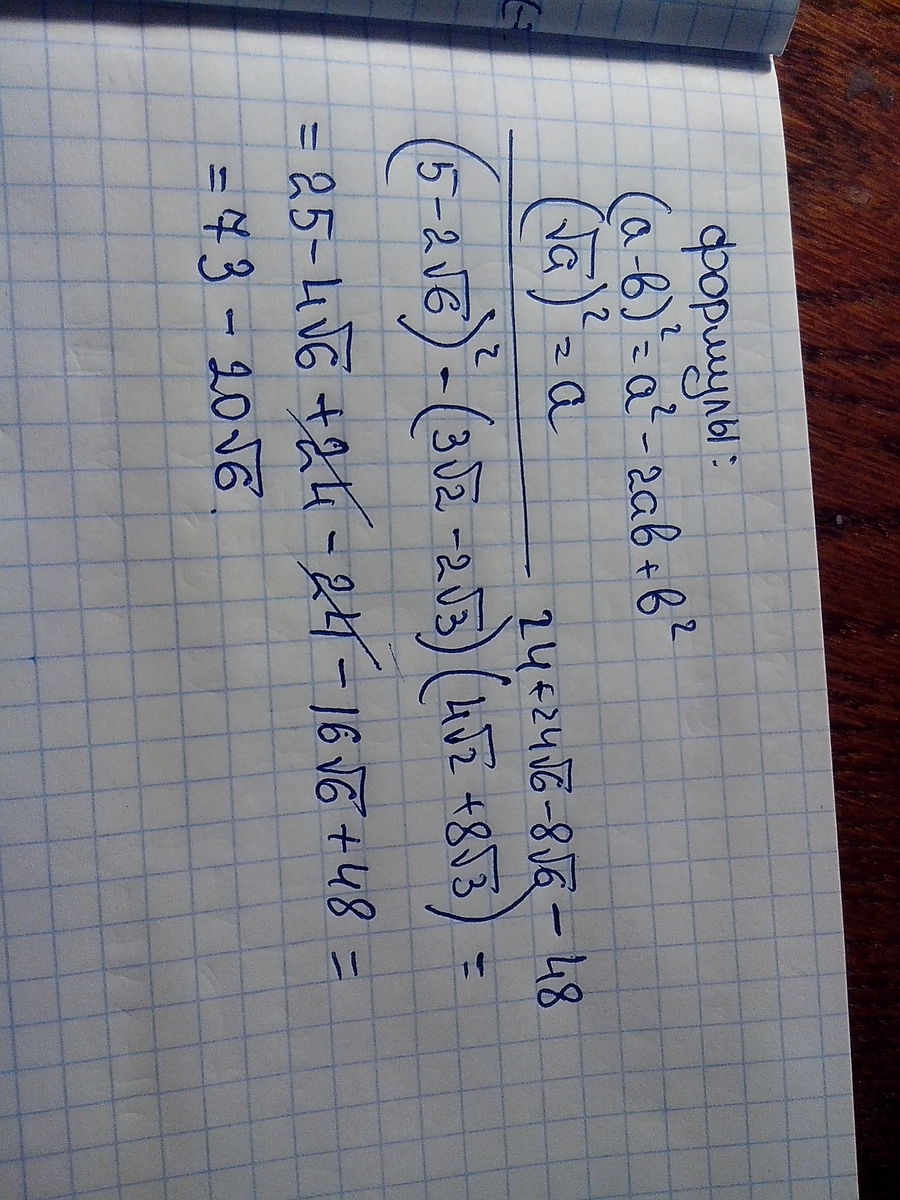 формулы:
(a-b)² = a² - 2ab + b²
(√a)² = a
24 + 24√6 - 8√6 - 48
(5 - 2√6)² - (3√2 - 2√3)(4√2 + 8√3) =
= 25 - 4√6 + 24 - 24 - 16√6 + 48 =
= 73 - 20√6.